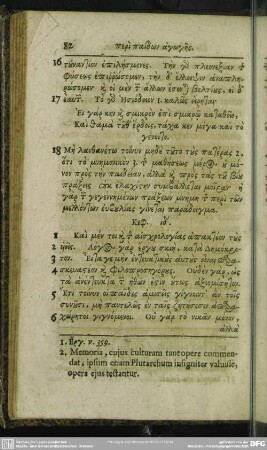 82 περὶ παίδων ἀγωγῆς.
16 τὐναντίον ἐπιλήσμονες. Τὴν γὸ πλεονεξίαν τ
φύσεως ἐπιρρώσομεν, τὴν δ' ἔλλειψιν ἀναπλη-
ρώσομεν· κ οἱ μὲν τ ἄλλων ἔσονται βελτίες, οἱ δ
17 ἑαυτ. Τὸ γὸ Ἡσιόδειον 1. καλῶς εἴρηται·
Εἰ γάρ κεν κ σμικρὸν ἐπὶ σμικρῷ καταθεῖο,
Καὶ θαμὰ τῦθ' ἔρδοις, τάχα κεν μέγα καὶ τὸ
γένοιτο.
18 Μὴ λανθανέτω τοίνυν μηδὲ τῦτο τὺς πατέρας 2.
ὅτι τὸ μνημονικὸν τ μαθήσεως μέρος ὐ μό-
νον πρὸς τὴν παιδείαν, ἀλλὰ κ πρὸς τὰς τῦ βίυ
πράξεις ὐκ ἐλαχίστην συμβάλλεται μοῖραν. ἡ
γὰρ τ γεγενημένων πράξεων μνήμη τ περὶ τῶν
μελλόντων εὐβυλίας γίνεται παράδειγμα.
Κεφ. ιδ.
1 Καὶ μέν τοι κ τ αἰσχρολογίας ἀπακτέον τὺς
2 υἱεῖς. Λόγος γὰρ ἔργυ σκιή, κατὰ Δημόκρι-
3 τον. Εἶτά γε μὴν ἐντευκτικὺς αὐτὺς εἶναι παρα-
σκευαστέον κ φιλοπροσηγόρυς. Οὐδὲν γὰρ, ὡς
4 τὰ ἀνέντευκτα τ ἠθῶν ἐστιν ὕτως ἀξιομίσητον.
5 Ἔτι τοίνυν οἱ παῖδες ἀμισεῖς γίγνοιντ' ἂν τοῖς
συνῦσι, μὴ παντελῶς ἐν ταῖς ζητήσεσιν ἀπαρα-
6 χώρητοι γιγνόμενοι. Οὐ γὰρ τὸ νικᾷν μόνον,
ἀλλὰ
1. Εργ. v. 359.
2. Memoria, cujus culturam tantopere commen-
dat, ipsum etiam Plutarchum insigniter valuisse,
opera ejus testantur.